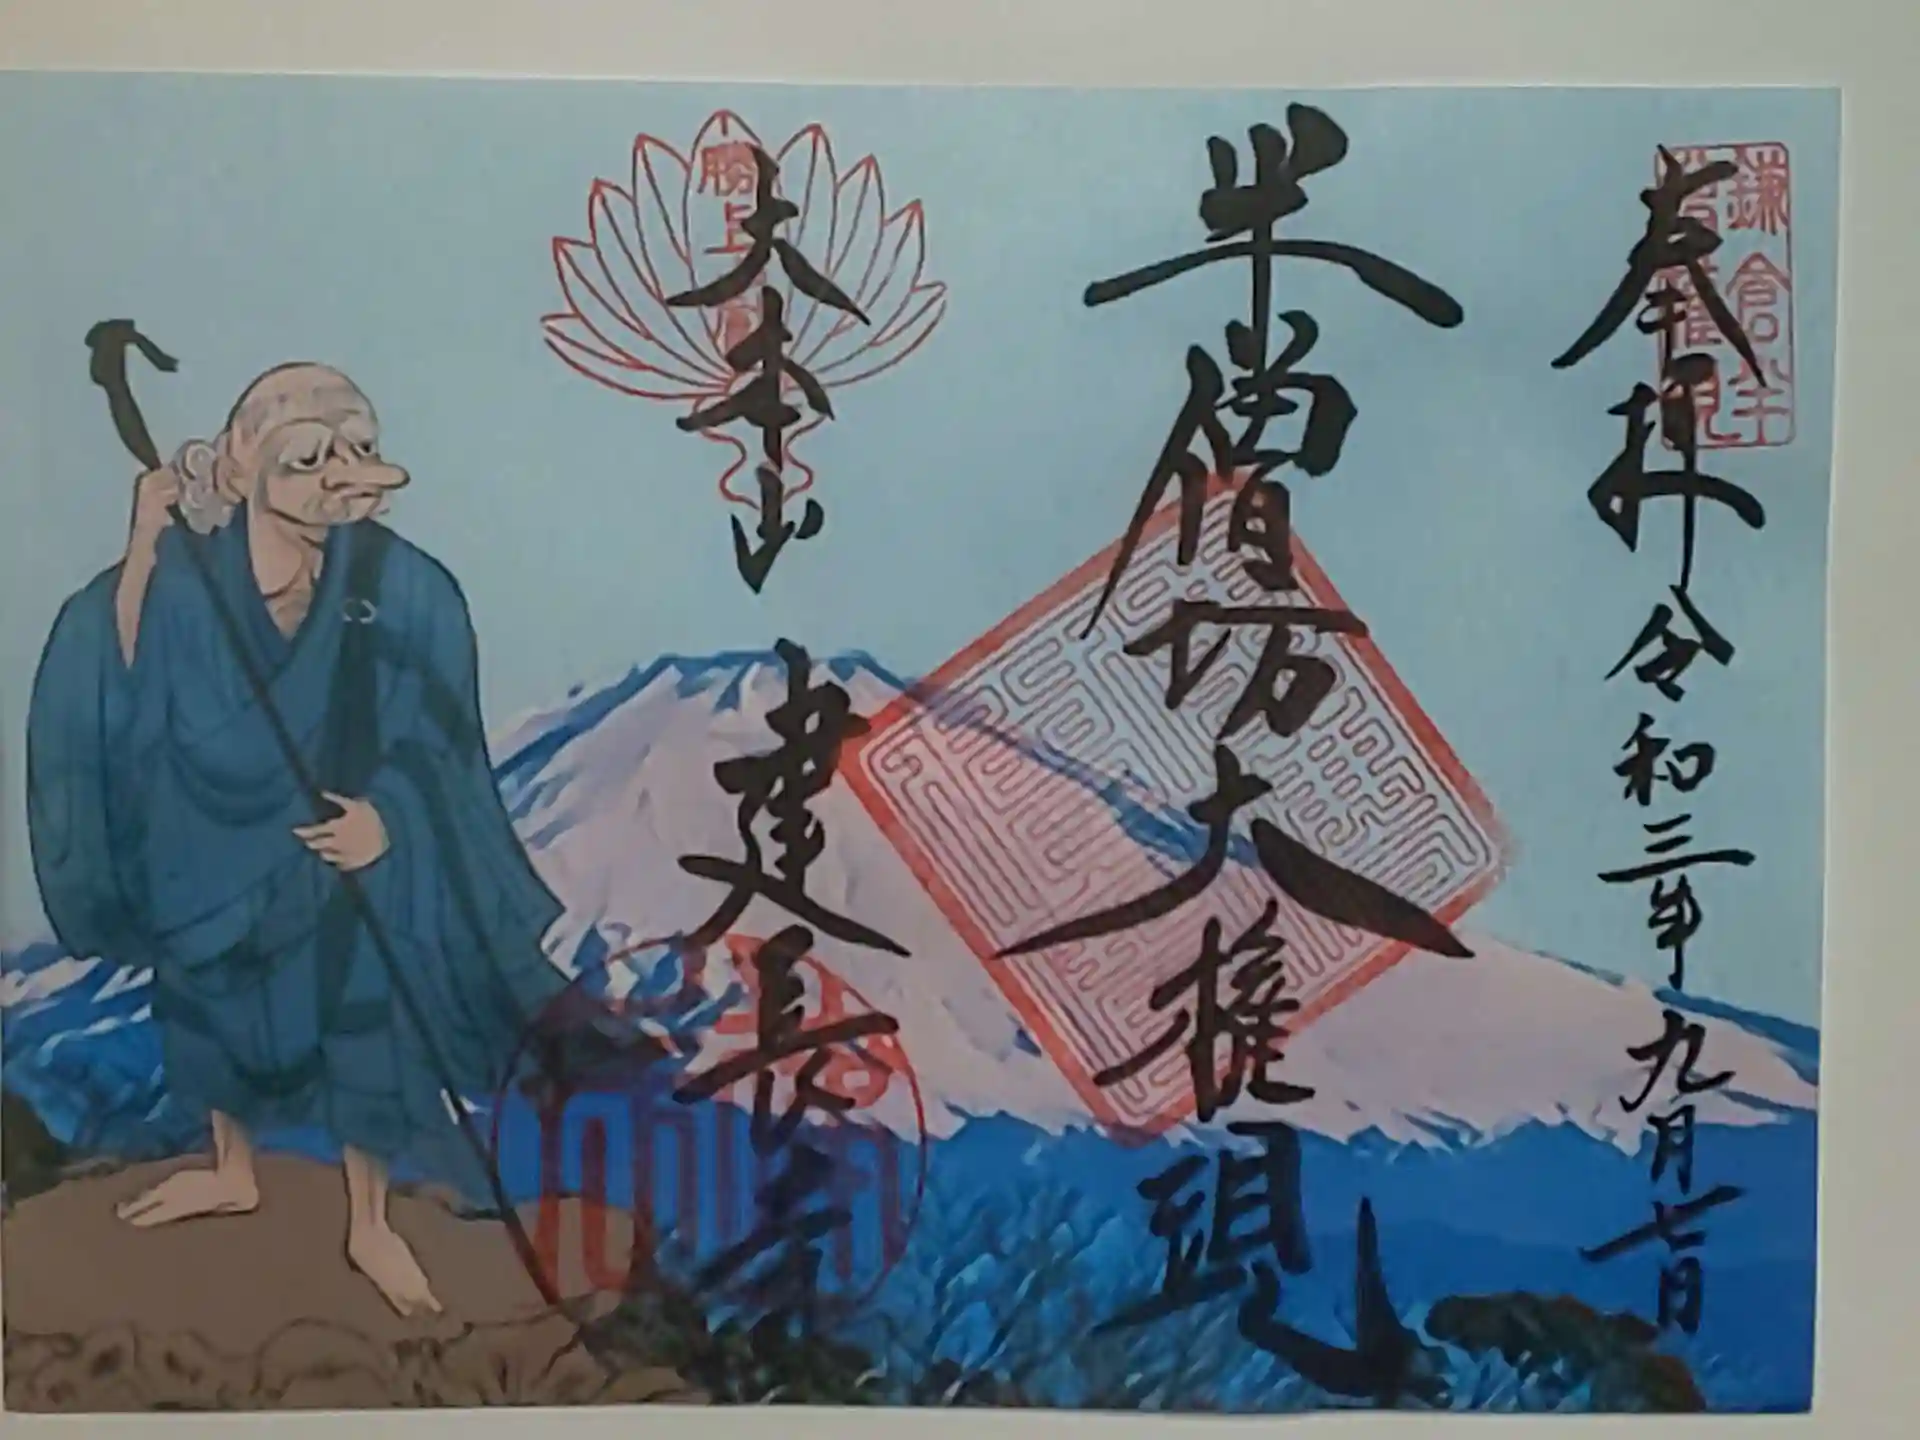 奉拝 令和三年九月七日
半僧坊大権現
大本山 建長寺
鎌倉半
僧坊権現
勝上